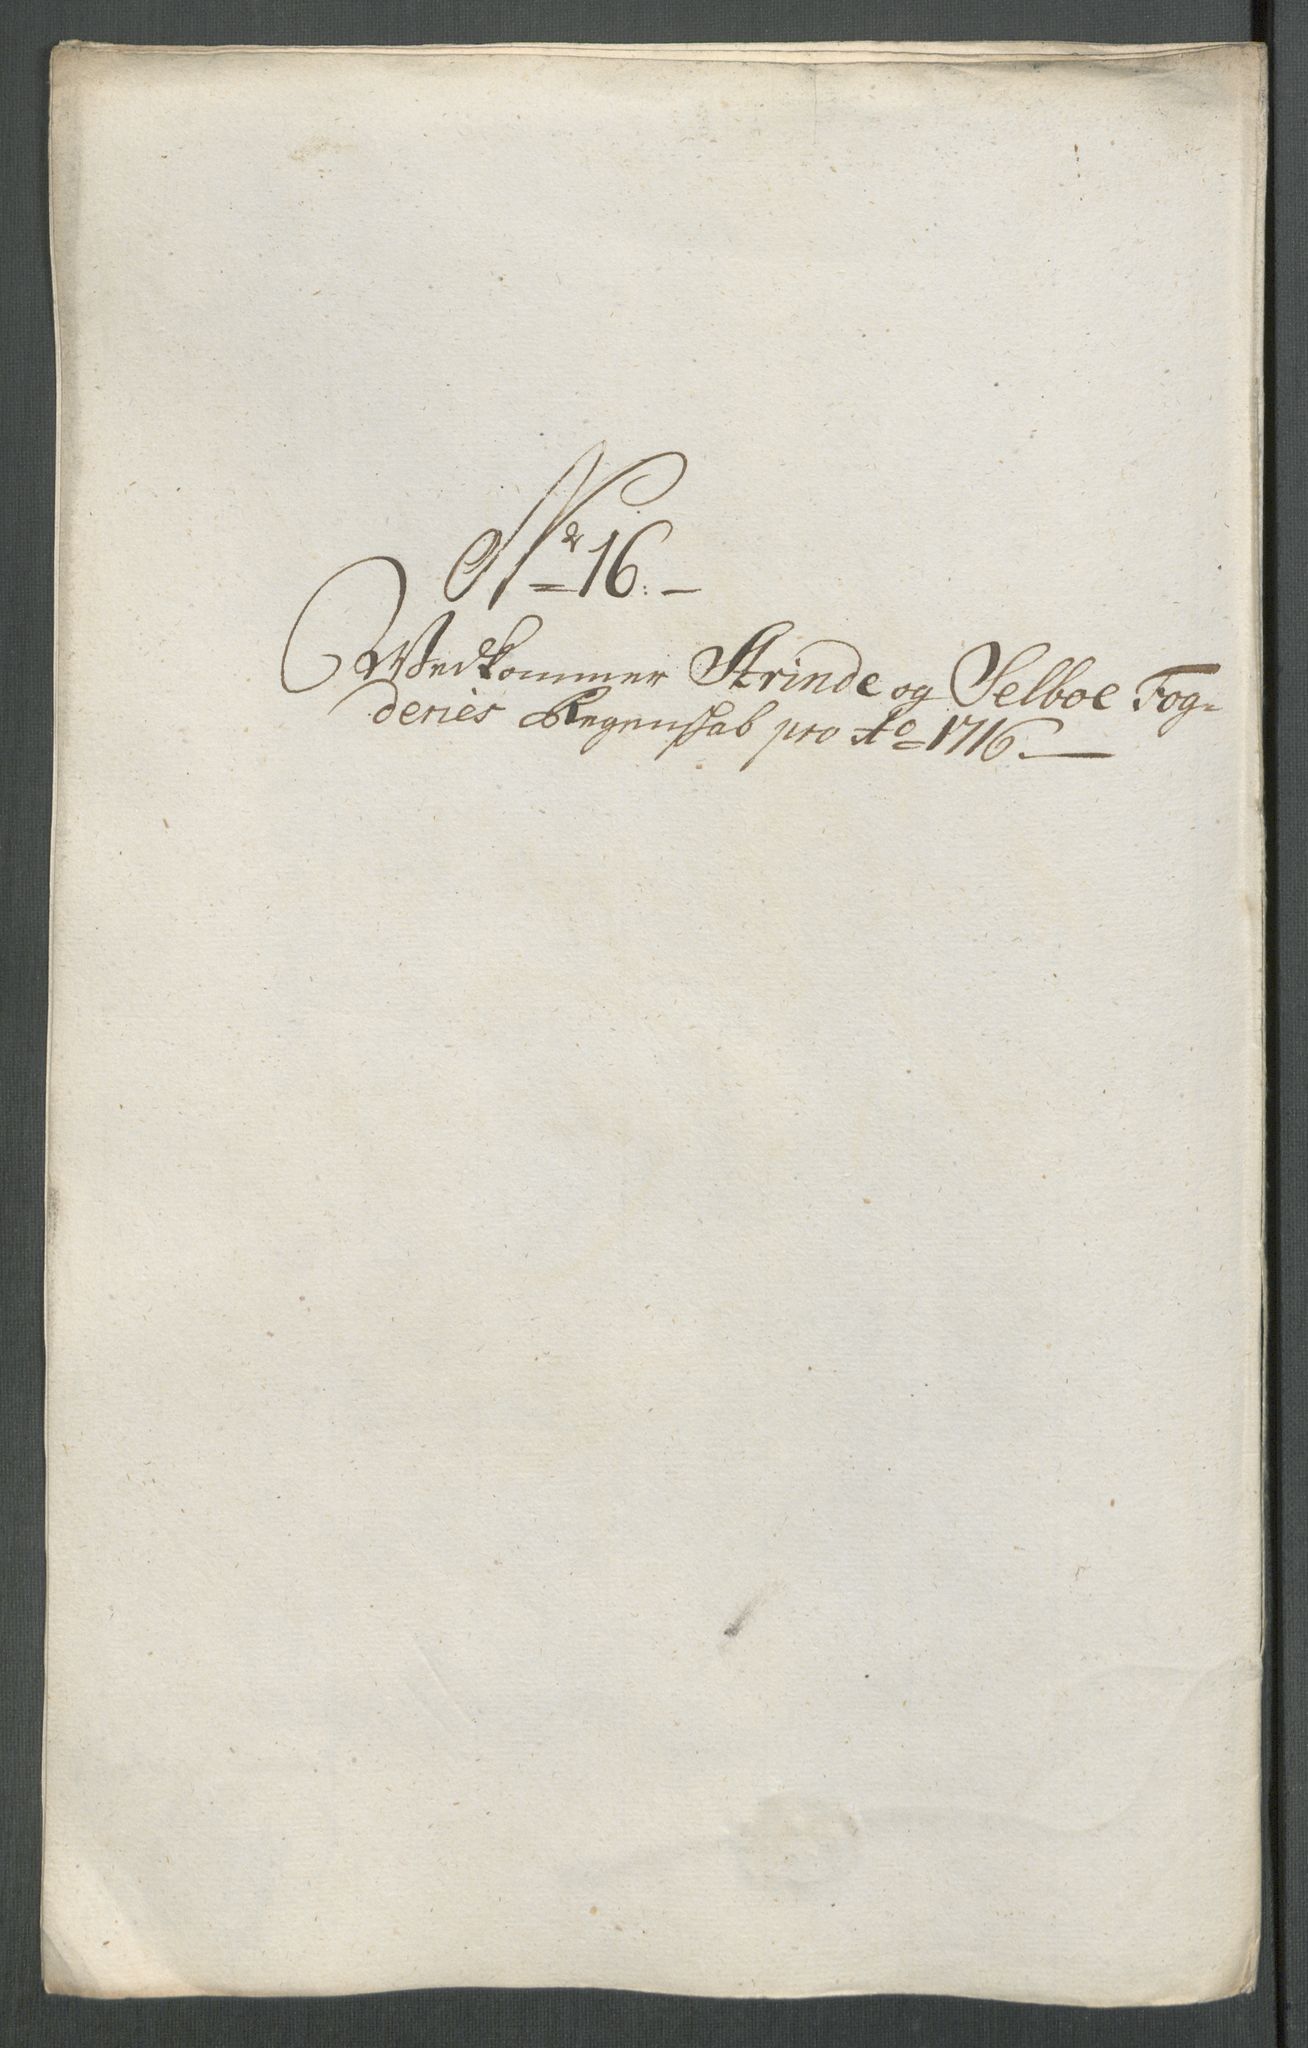 Nr 16.
Wedkommer Strinde og Selboe Fog=
deries Regenschab pro Ao 1716.